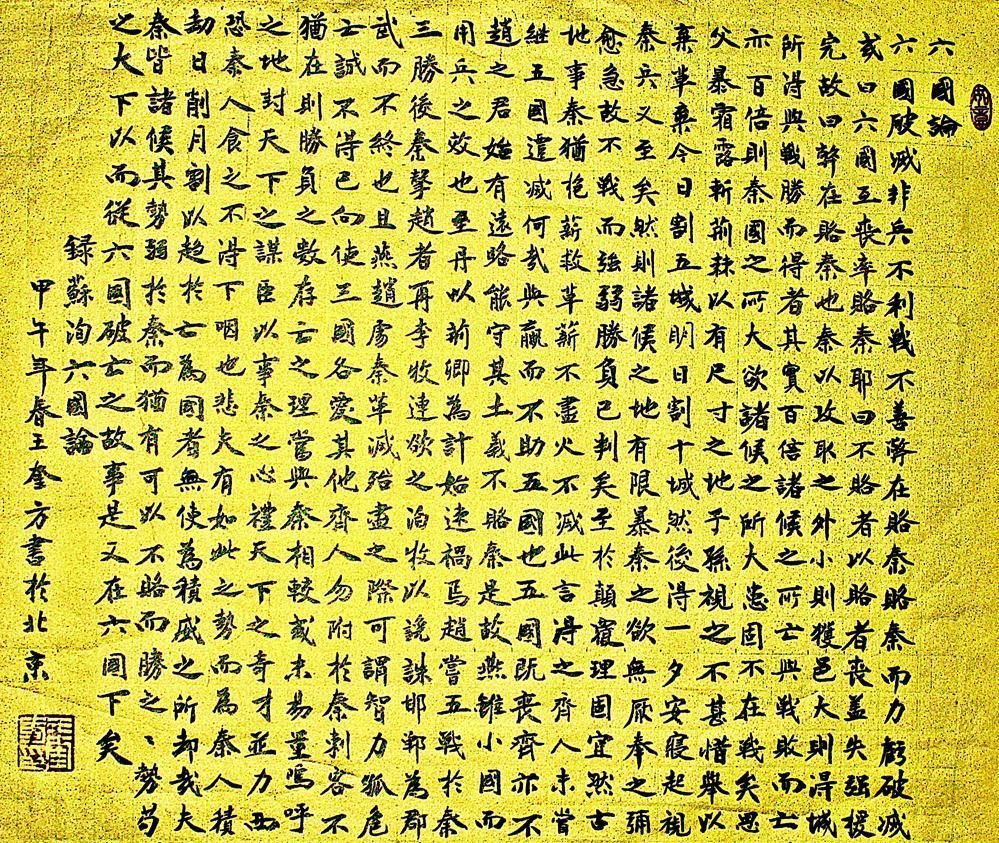 六國論
六國破滅非兵不利戰不善弊在賂秦賂秦而力虧破滅
或曰六國互喪率賂秦耶曰不賂者以賂者喪蓋失强援
完故曰弊在賂秦也秦以攻取之外小則獲邑大則得城
所得與戰勝而得者其實百倍諸候之所亡與戰敗而亡
亦百倍則秦國之所大欲諸候之所大患固不在戰矣思
父暴霜露斬荊棘以有尺寸之地子孫視之不甚惜舉以
棄草棄今日割五城明日割十城然後得一夕安寢起視
秦兵又至矣然則諸候之地有限暴秦之欲無厭奉之彌
愈急故不戰而強弱勝負已判矣至於顛覆理固宜然古
地事秦猶抱薪救草薪不盡火不滅此言得之齊人未嘗
継五國遣滅何哉與贏而不助五國也五國既喪齊亦不
趙之君始有遠略能守其土義不賂秦是故燕雖小國而
用兵之效也至丹以荊卿為計始速禍焉趙嘗五戰於秦
三勝後秦擊趙者再李牧連欲之洎牧以讒誅邯鄲為郡
武而不終也且燕趙處秦革滅殆盡之際可謂智力孤危
亡誠不得已向使三國各愛其他齊人勿附於秦刺客不
猶在則勝負之數存亡之理當與秦相較或未易量嗚呼
之地封天下之謀臣以事秦之心禮天下之奇才並力西
恐秦人食之不得下咽也悲夫有如此之勢而為秦人積
劫日削月割以趨於亡為國者無使為積威之所却哉夫
秦皆諸候其勢弱於秦而猶有可以不賂而勝之、勢苟
之大下以而從六國破亡之故事是又在六國下矣
録蘇洵六國論
甲午年春王奎方書於北京